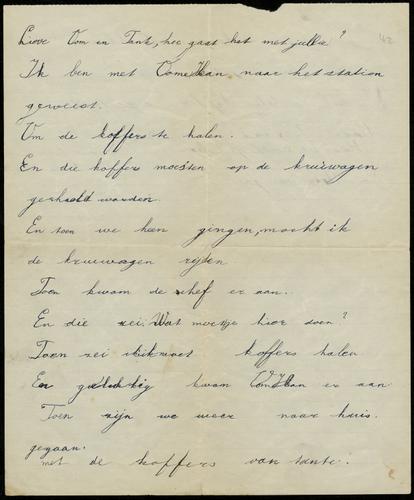 Lieve Oom en Tante, hoe gaat het met jullie?
Ik ben met Oome Han naar het station
geweest.
Om de koffers te halen.
En die koffers moesten op de kruiwagen
gehaald worden.
En toen we heen gingen, mocht ik
de kruiwagen rijden
Toen kwam de chef er aan.
En die zei: Wat moetje hier doen?
Toen zei ik ik moet koffers halen
En gelukkig kwam Oome Han er aan
Toen zijn we weer naar huis.
gegaan.
met de koffers van tante.
42